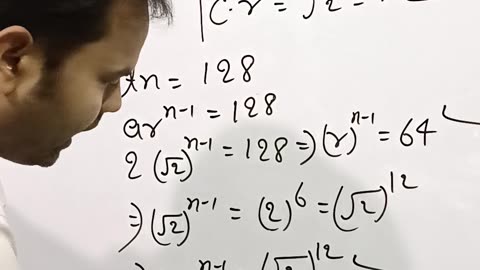 C.r = √2 =
tn = 128
ar^{n-1} = 128
2 (√2)^{n-1} = 128 ⇒ (r)^{n-1} = 64
⇒ (√2)^{n-1} = (2)^6 = (√2)^{12}
n-1 = (√2)^{12}